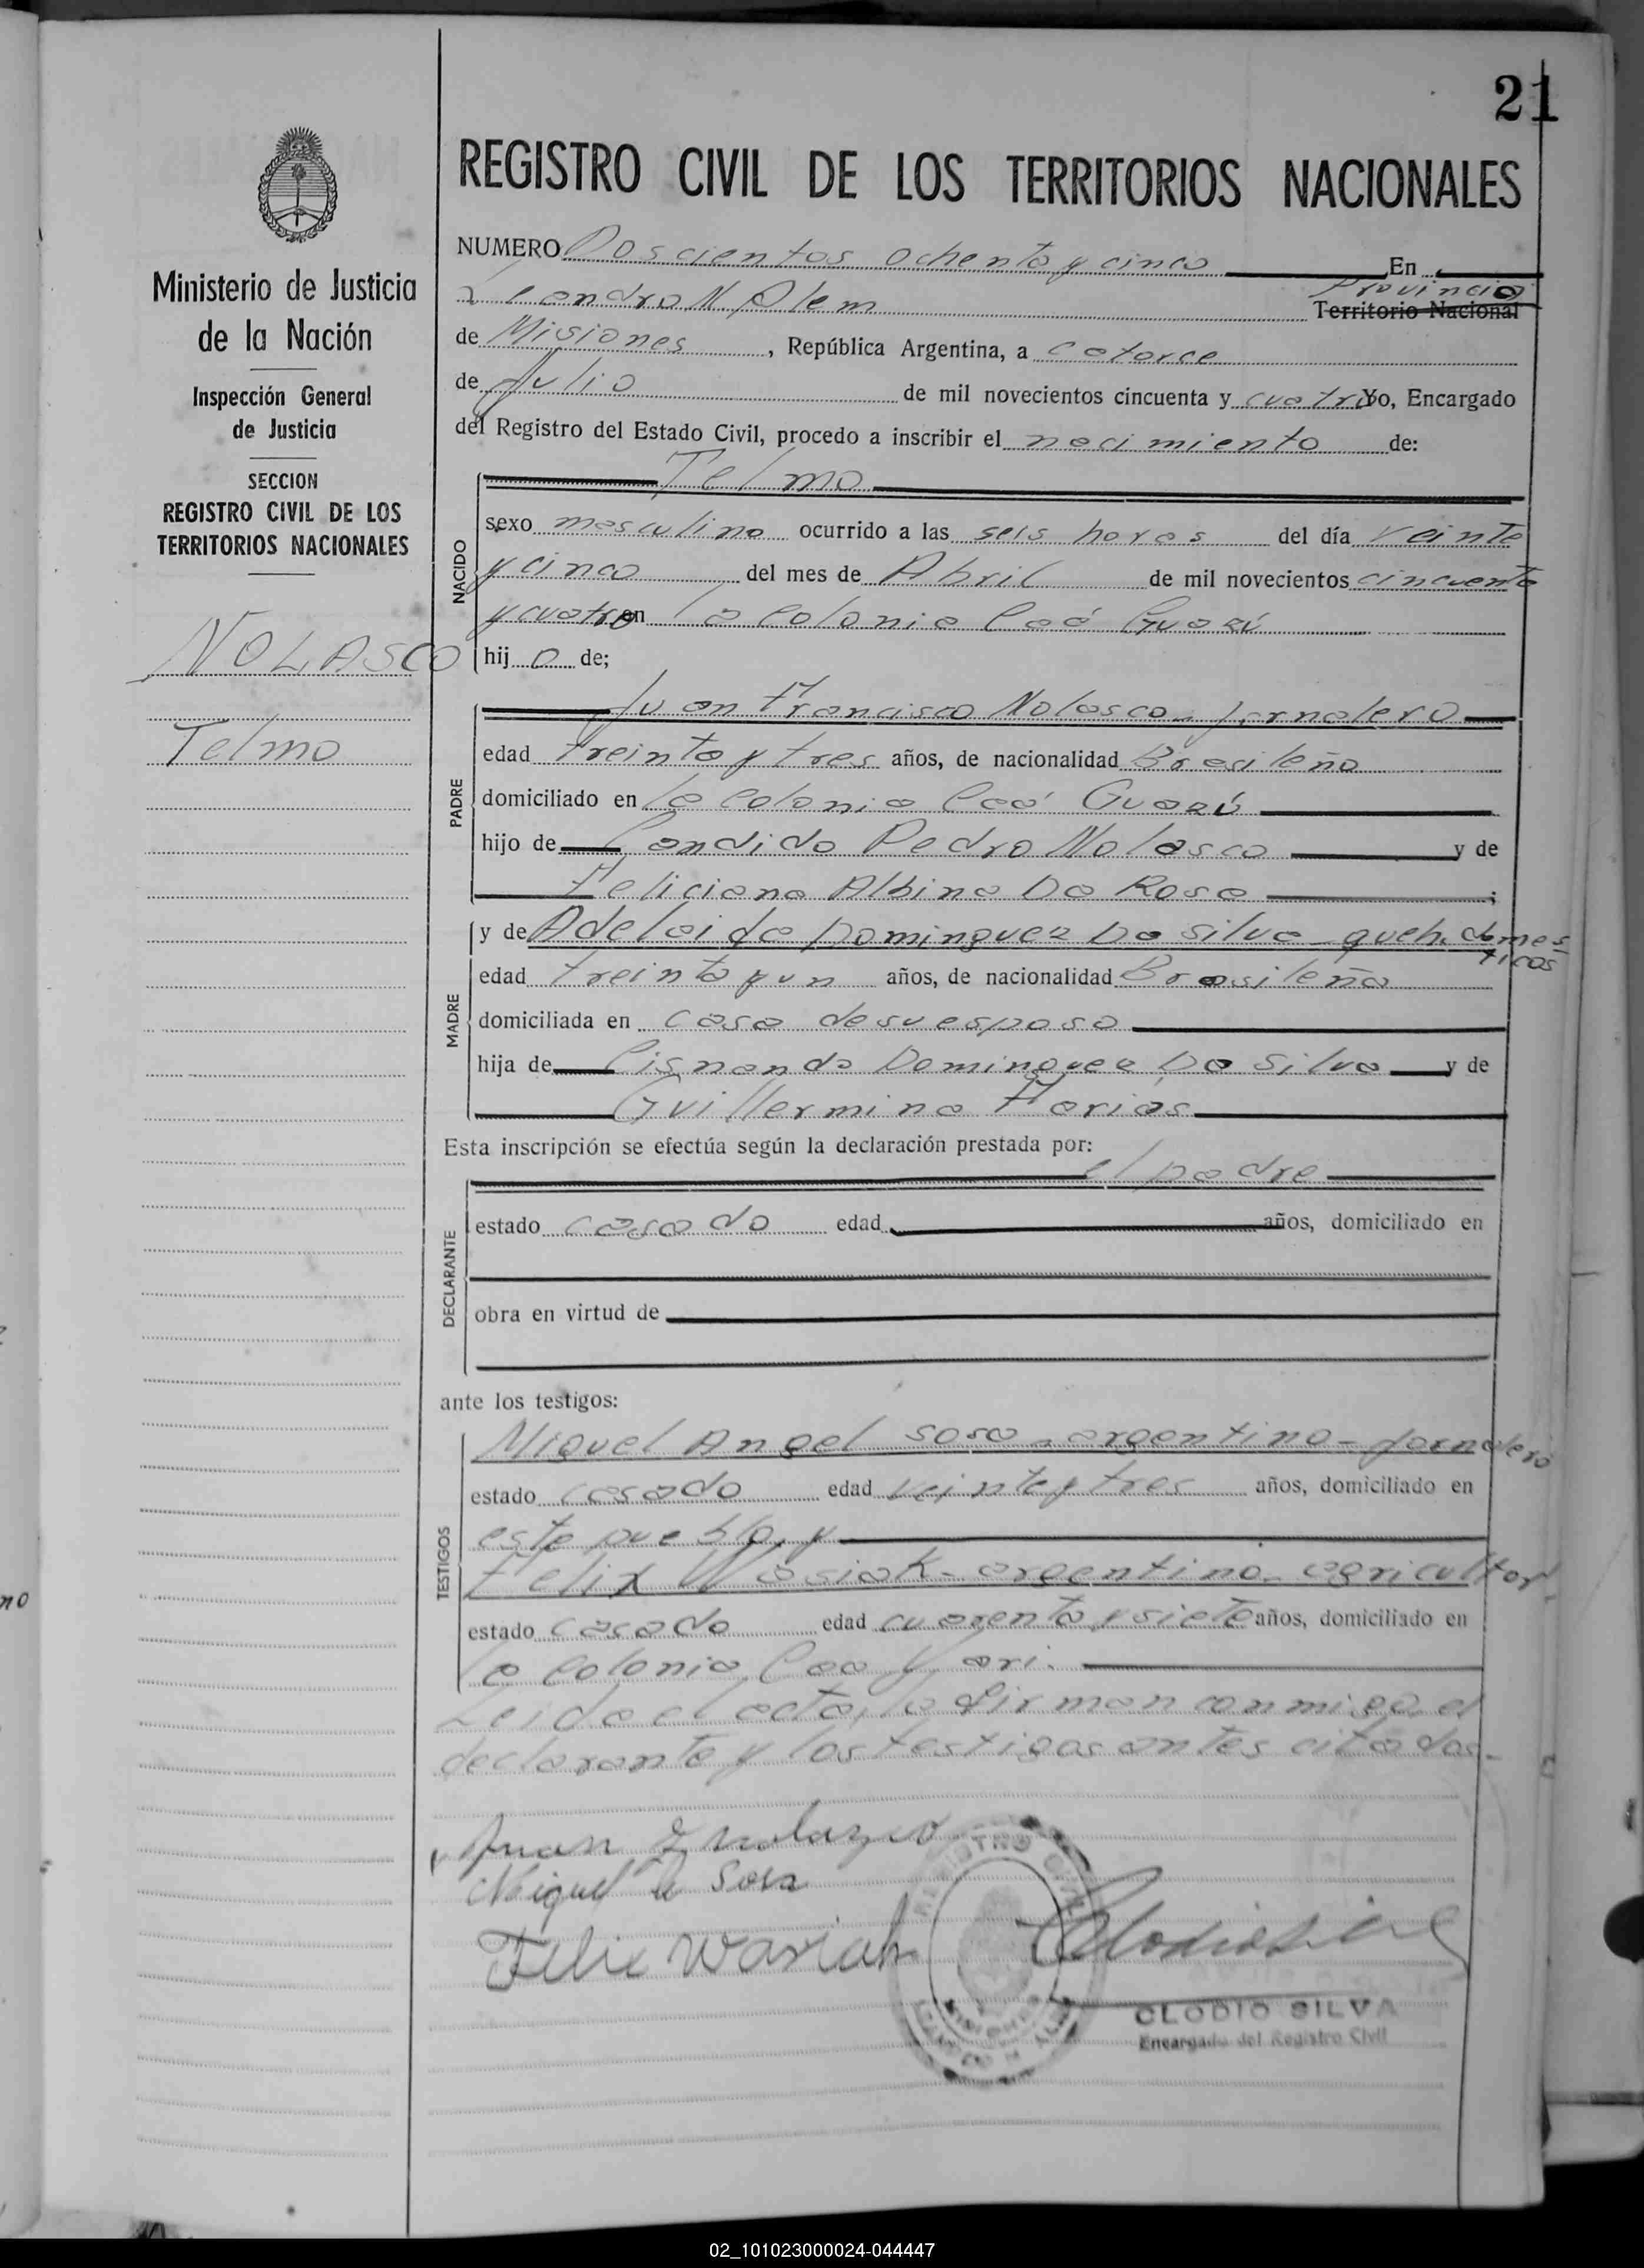 21
REGISTRO CIVIL DE LOS TERRITORIOS NACIONALES
Ministerio de Justicia
de la Nación
Inspección General
de Justicia
SECCION
REGISTRO CIVIL DE LOS
TERRITORIOS NACIONALES
NOLASCO
Telmo
NUMERO Doscientos ochenta y cinco En
Leandro N. Alem Provincia Territorio Nacional
de Misiones, República Argentina, a catorce
de Julio de mil novecientos cincuenta y cuatro Yo, Encargado
del Registro del Estado Civil, procedo a inscribir el nacimiento de:
NACIDO
Telmo
sexo masculino ocurrido a las seis horas del día veinte
y cinco del mes de Abril de mil novecientos cincuenta
y cuatro en la Colonia Caá Guazú
hijo de;
PADRE
Juan Francisco Nolasco - jornalero
edad treinta y tres años, de nacionalidad Brasileña
domiciliado en la Colonia Caá Guazú
hijo de Candido Pedro Nolasco y de
Feliciana Albina Da Rosa ;
MADRE
y de Adelaida Dominguez Da Silva - queh. domes
ticos
edad treinta y un años, de nacionalidad Brasileña
domiciliada en casa de su esposo
hija de Cisnando Dominguez Da Silva y de
Guillermina Farias
Esta inscripción se efectúa según la declaración prestada por:
DECLARANTE
el padre
estado casado edad años, domiciliado en
obra en virtud de
ante los testigos:
TESTIGOS
Miguel Angel Sosa - argentino - jornalero
estado casado edad veinte y tres años, domiciliado en
este pueblo, y
Felix Wasiak - argentino - agricultor
estado casado edad cuarenta y siete años, domiciliado en
la Colonia Caa Yari.
Leida el acta, la firman conmigo, el
declarante y los testigos antes citados.-
Juan F Nolazco
Miguel A Sosa
Felix Wasiak
REGISTRO CIVIL
MISIONES
LEANDRO N. ALEM
Clodio Silva
CLODIO SILVA
Encargado del Registro Civil
no
02_101023000024-044447